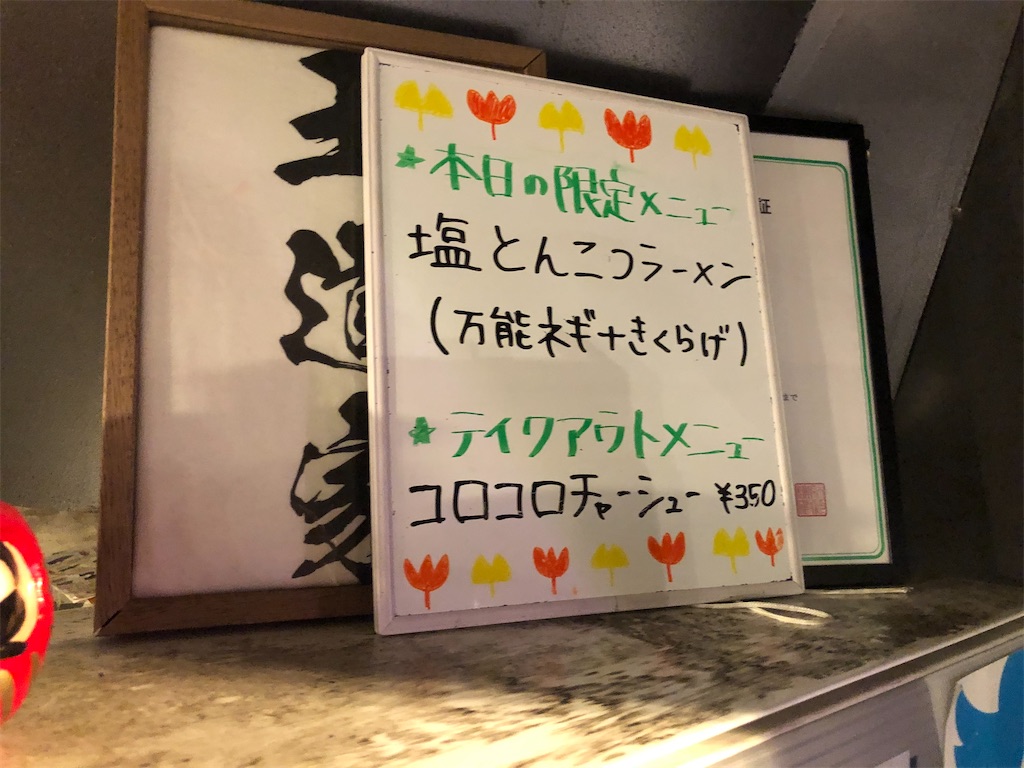 王道家
★本日の限定メニュー
塩とんこつラーメン
(万能ネギ+きくらげ)
★テイクアウトメニュー
コロコロチャーシュー ¥350
証
まで